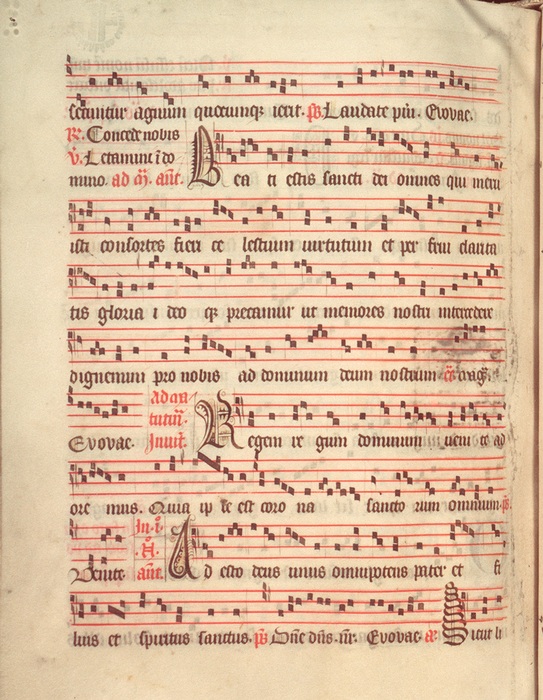 sequitur agnum quocumqꝫ ierit. ps Laudate pūi. Evovae.
R̷. Concede nobis
v̷. Letamini ī do
mino. ad m̄. ant̄.
Bea ti estis sancti dei omnes qui meru
isti consortes fieri ce lestium uirtutum et per frui clarita
tis gloria i deo qꝫ precamur ut memores nostri intercedere
dignemini pro nobis ad dominum deum nostrum
Evovae.
Ad ma
tutin̄.
Inuit̄.
Regem re gum dominum ueni te ad
ore mus. Quia ip se est coro na sancto rum omnium. ps
Venite
In .i.
.N̄.
ant̄.
Ad esto deus unus omnipotens pater et fi
lius et spiritus sanctus. ps Dn̄e dn̄s. nr̄. Evovae a Sicut li